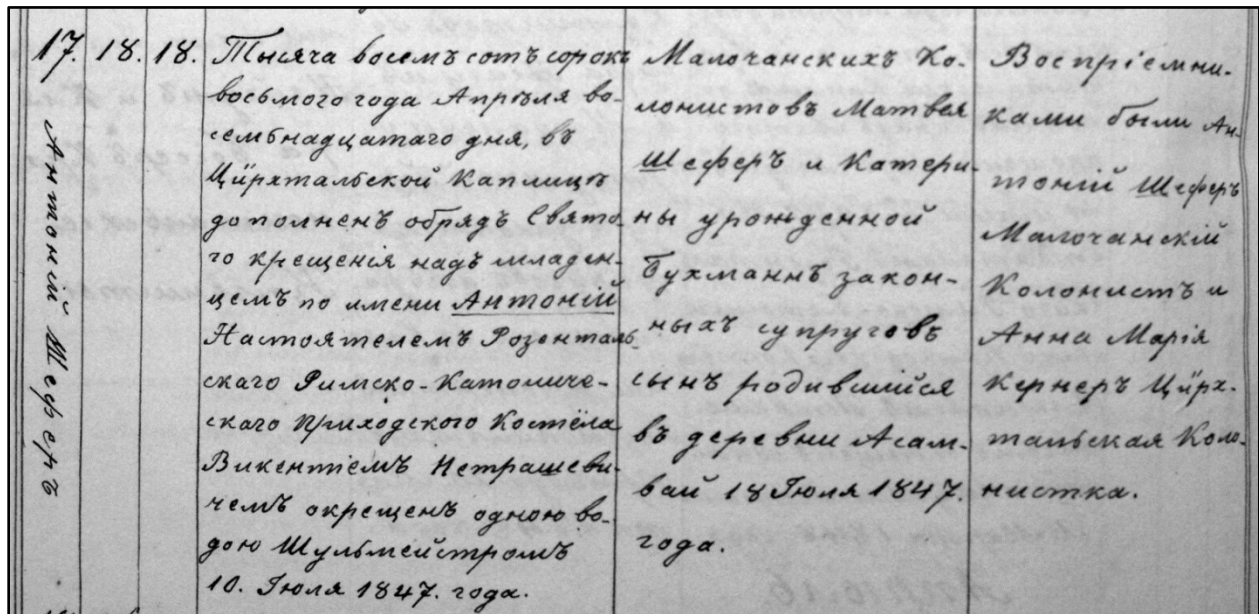 17. 18. 18.
Антоній Шеферъ
Тысяча восемъ сотъ сорокъ
восьмого года Апрѣля во-
сембнадцатаго дня, въ
Цӥрхтальской Каплицѣ
дополненъ обрядъ Свято
го крещенія надъ младен-
цемъ по имени Антоній
Настоятелемъ Розенталь
скаго Римско-Католиче-
скаго Приходского Костёла
Викентіемъ Нетрашеви-
чемъ окрещенъ одною во-
дою Шульмейстромъ
10. Июля 1847. года.
Малочанскихъ Ко-
лонистовъ Матвея
Шеферъ и Катери-
ны урожденной
Бухманнъ закон-
ныхъ супруговъ
сынъ родившійся
въ деревни Асам-
бай 18 Июля 1847.
года.
Воспріемни-
ками были Ан-
тоній Шеферъ
Малочанскій
Колонистъ и
Анна Марія
Кернеръ Цӥрх-
тальская Коло-
нистка.